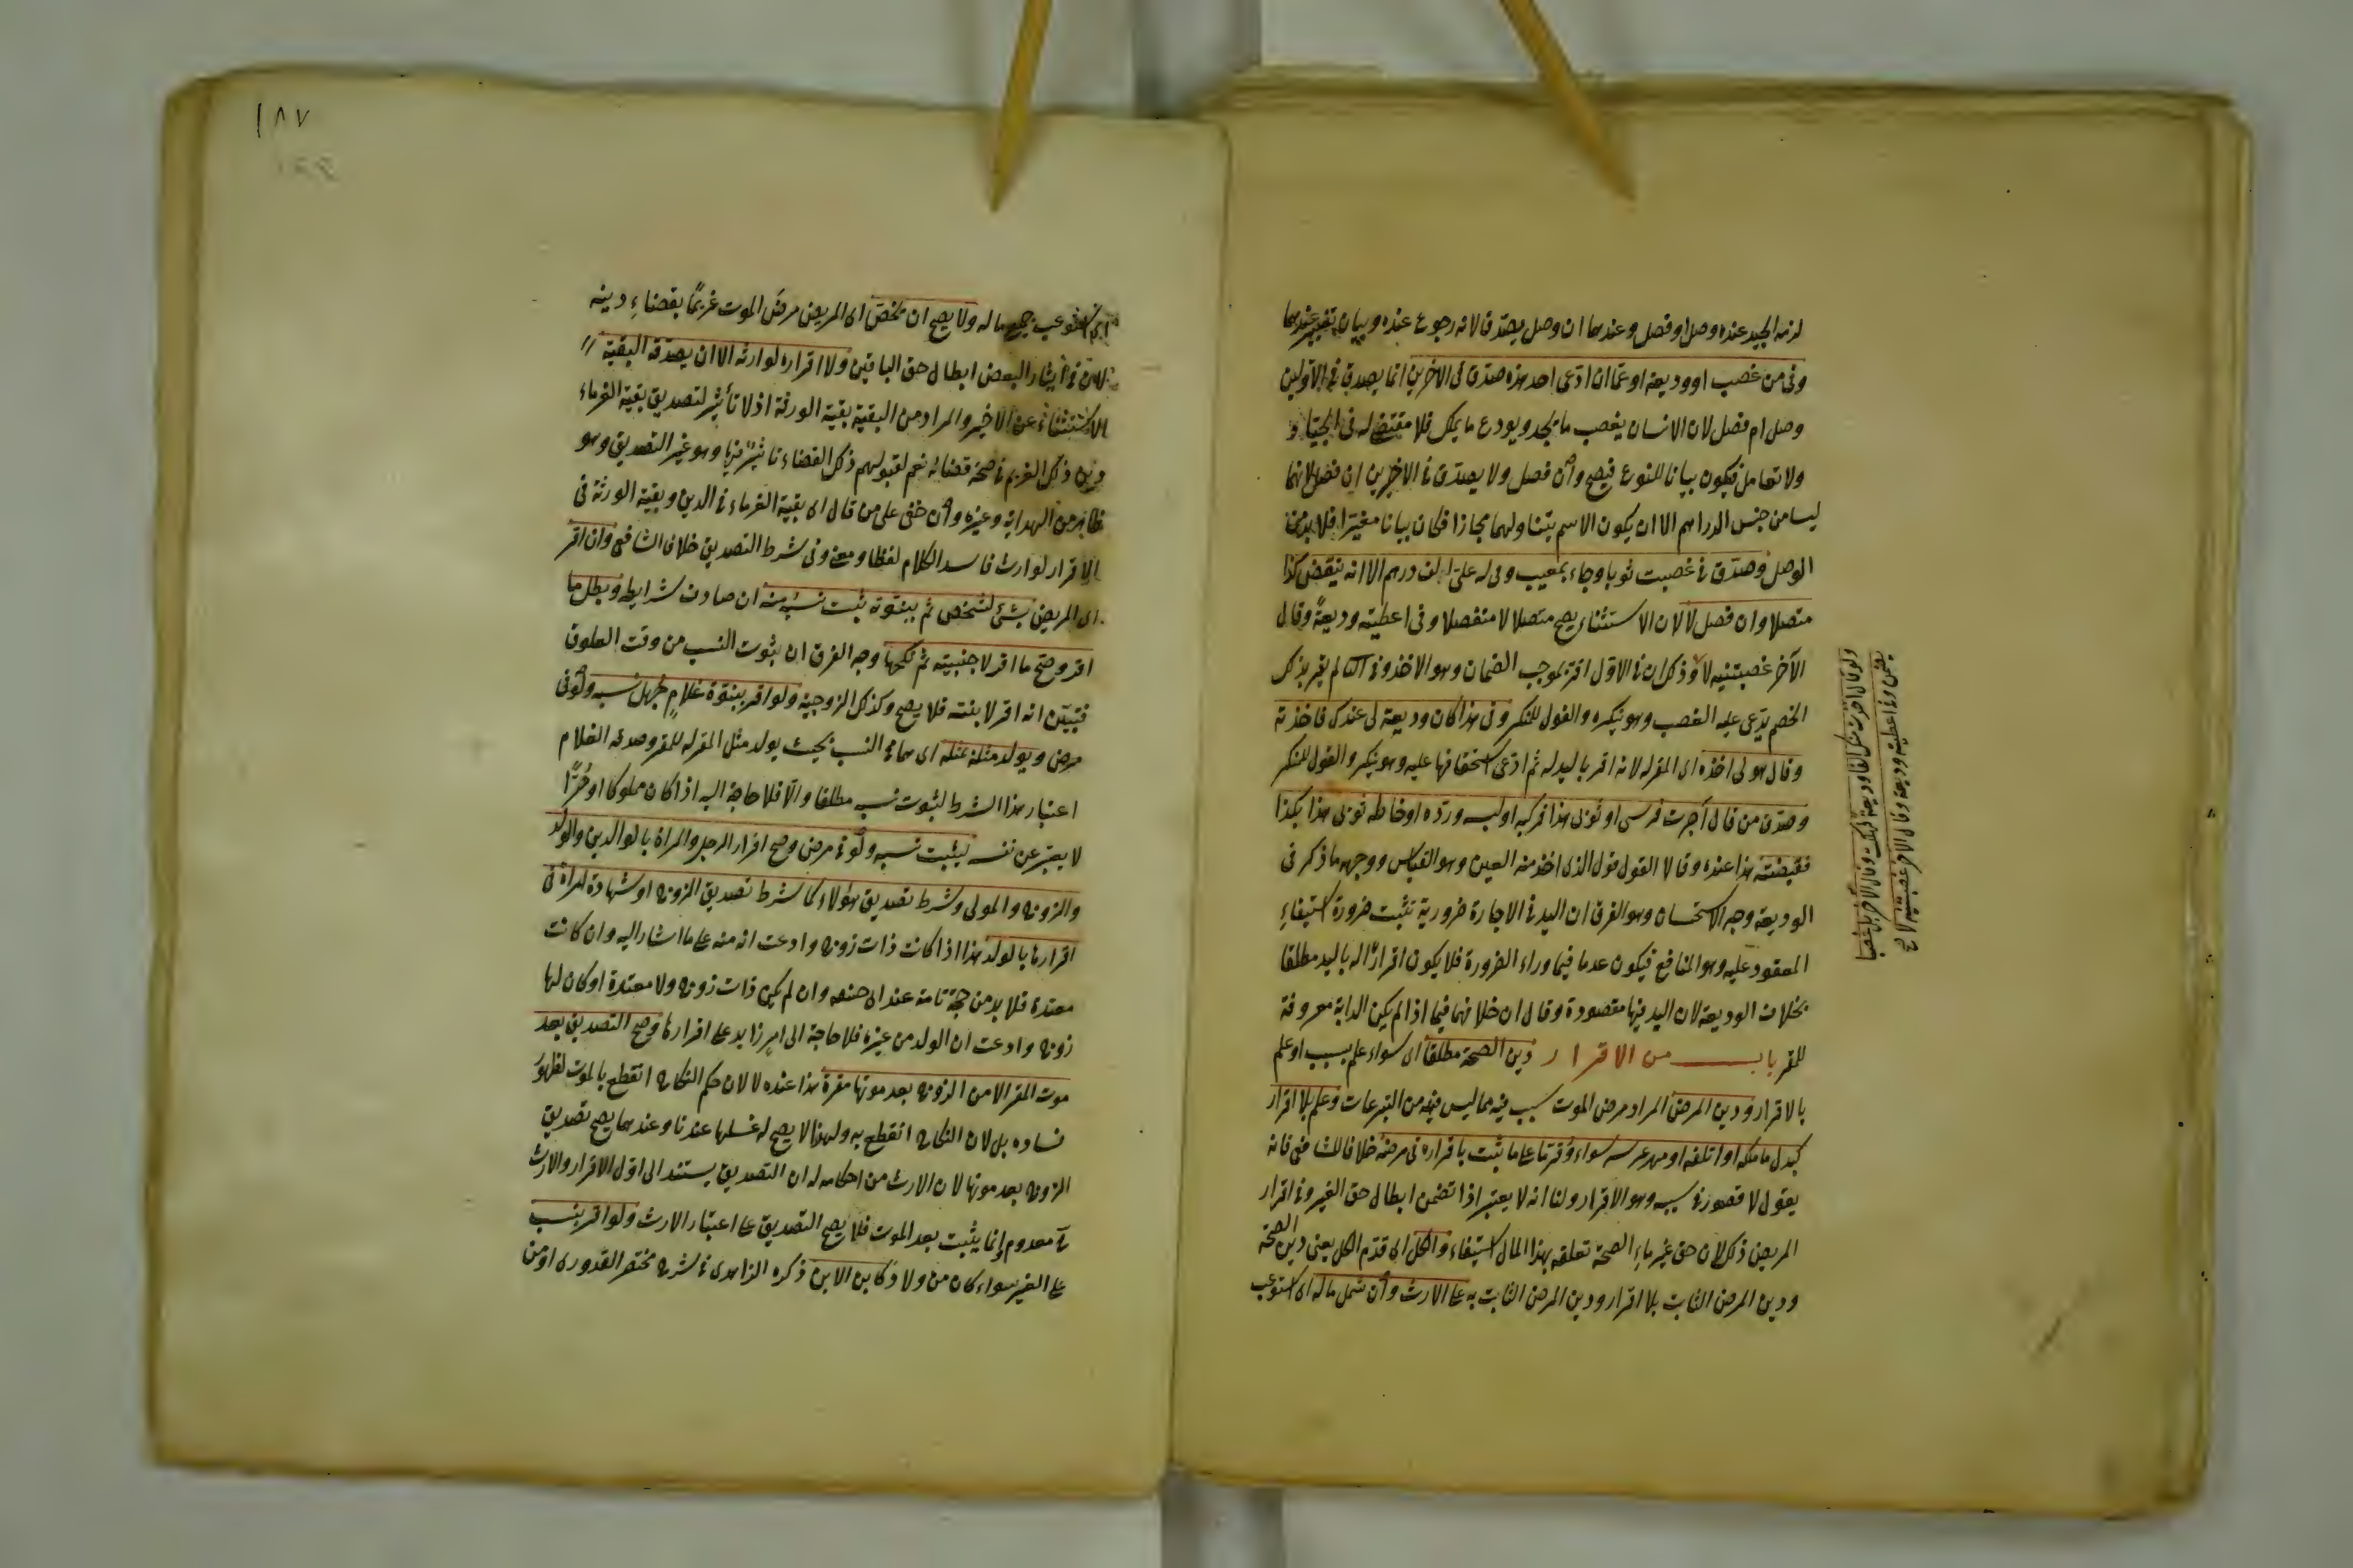 لزمه الجيد عنده وصل او فصل وعندهما ان وصل يصدق لانه رجوع عنده وبيان تغيير عندهما
وفى من غصب او وديعة او عما ان ادعى احد هذه صدق فى الاخرين انما يصدق فى الاولين
وصل ام فصل لان الانسان يغصب ما يجد ويودع ما يملك فلا مقتضى له فى الجياد
ولا تعامل فيكون بيانا للنوع فيصح وان فصل ولا يصدق فى الاخيرين ان فصل لانهما
ليسا من جنس الدراهم الا ان يكون الاسم يتناولهما مجازا فكان بيانا مغيرا فلا بد من
الوصل وصدق فى غصبت ثوبا وجاء بمعيب وفى له على الف درهم الا انه ينقض كذا
متصلا وان فصل لا لان الاستثناء يصح متصلا لا منفصلا وفى اعطيته وديعة وقال
الآخر غصبتنيه لا وذكر ان فى الاول اقر بموجب الضمان وهو الاخذ وفى الثا لم يقر بذلك
الخصم يدعى عليه الغصب وهو ينكره والقول للمنكر وفى هذا كان وديعة لى عندك فاخذته
وقال هو لى اخذه اى المقر له لانه اقر باليد له ثم ادعى استحقاقها عليه وهو ينكر والقول للمنكر
وصدق من قال آجرت فرسى او ثوبى هذا فركبه او لبسه ورده او خاط ثوبى هذا بكذا
فقبضته هذا عنده وقالا القول قول الذى اخذ منه العين وهو القياس ووجهه ما ذكر فى
الوديعة وجه الاستحسان وهو الفرق ان اليد فى الاجارة ضرورية تثبت ضرورة استيفاء
المعقود عليه وهو المنافع فيكون عدما فيما وراء الضرورة فلا يكون اقرارا له باليد مطلقا
بخلاف الوديعة لان اليد فيها مقصودة وقال ان خلافهما فيما اذا لم يكن الدابة معروفة
للمقر باب من الاقرار دين الصحة مطلقا اى سواء علم بسبب او علم
بالاقرار ودين المرض المراد مرض الموت بسبب فيه مما ليس فيه من التبرعات وعلم بلا اقرار
كبدل ما ملكه او اتلفه او مهر عرسه سواء وقدما على ما يثبت باقراره فى مرضه خلافا للشافعى فانه
يقول لا قصور فى سببه وهو الاقرار ولنا انه لا يعتبر اذا تضمن ابطال حق الغير وفى اقرار
المريض ذلك لان حق غرماء الصحة تعلقه بهذا المال استيفاء والكل اى قدم الكل يعنى دين الصحة
ودين المرض الثابت بلا اقرار ودين المرض الثابت به على الارث وان شمل ماله اى استوعب
ولو قال اخذت منك الفا وديعة فهلكت وقال الآخر بل غصبا
يضمن وفى اعطيته وديعة وقال الآخر غصبتنيه لا
١٨٧
جميع ماله ولا يصح ان يخص اى المريض مرض الموت غريما بقضاء دينه
لان فى ايثار البعض ابطال حق الباقين ولا اقراره لوارثه الا ان يصدقه البقية
الاستثناء عن الاخير والمراد من البقية بقية الورثة اذ لا تأثير لتصديق بقية الغرماء
دين ذلك الغريم فى صحة قضائه نعم لقبولهم ذلك القضاء تاثير فيها وهو غير التصديق وهو
ظاهر من الهداية وغيره وان خفى على من قال اى بقية الغرماء فى الدين وبقية الورثة فى
الاقرار لوارث فاسد الكلام لفظا ومعنى وفى شرط التصديق خلاف الشافعى وان اقر
اى المريض بشئ لشخص ثم ببنوته يثبت نسبه منه ان صادف شرايطه وبطل ما
اقر وصح ما اقر لاجنبيته ثم نكحها وجه الفرق ان ثبوت النسب من وقت العلوق
فتبين انه اقر لابنته فلا يصح وكذلك الزوجية ولو اقر ببنوة غلام جهل نسبه ولو فى
مرض ويولد مثله لمثله اى هما فى النسب بحيث يولد مثل المقر له للمقر وصدقه الغلام
اعتبار هذا الشرط لثبوت نسبه مطلقا والا فلا حاجة اليه اذا كان مملوكا او حرا
لا يعبر عن نفسه ليثبت نسبه ولو فى مرض وصح اقرار الرجل والمراة بالوالدين والولد
والزوجه والمولى وشرط تصديق هؤلاء كما شرط تصديق الزوج او شهادة امراة فى
اقرارها بالولد هذا اذا كانت ذات زوج وادعت انه منه على ما اشار اليه وان كانت
معتدة فلا بد من حجة تامة عند ابى حنيفه وان لم يكن ذات زوج ولا معتدة او كان لها
زوج وادعت ان الولد من غيره فلا حاجة الى امر زايد على اقرارها وصح التصديق بعد
موت المقر الا من الزوج بعد موتها مقرة هذا عنده لا لان حكم النكاح انقطع بالموت لظهور
فساده بل لان النكاح انقطع به ولهذا لا يصح له غسلها عندنا وعندهما يصح تصديق
الزوج بعد موتها لان الارث من احكامه له ان التصديق يستند الى اول الاقرار والارث
معدوم انما يثبت بعد الموت فلا يصح التصديق على اعتبار الارث ولو اقر بنسب
على الغير سواء كان من ولاد كابن الابن ذكره الزاهدى فى شرح مختصر القدورى او من